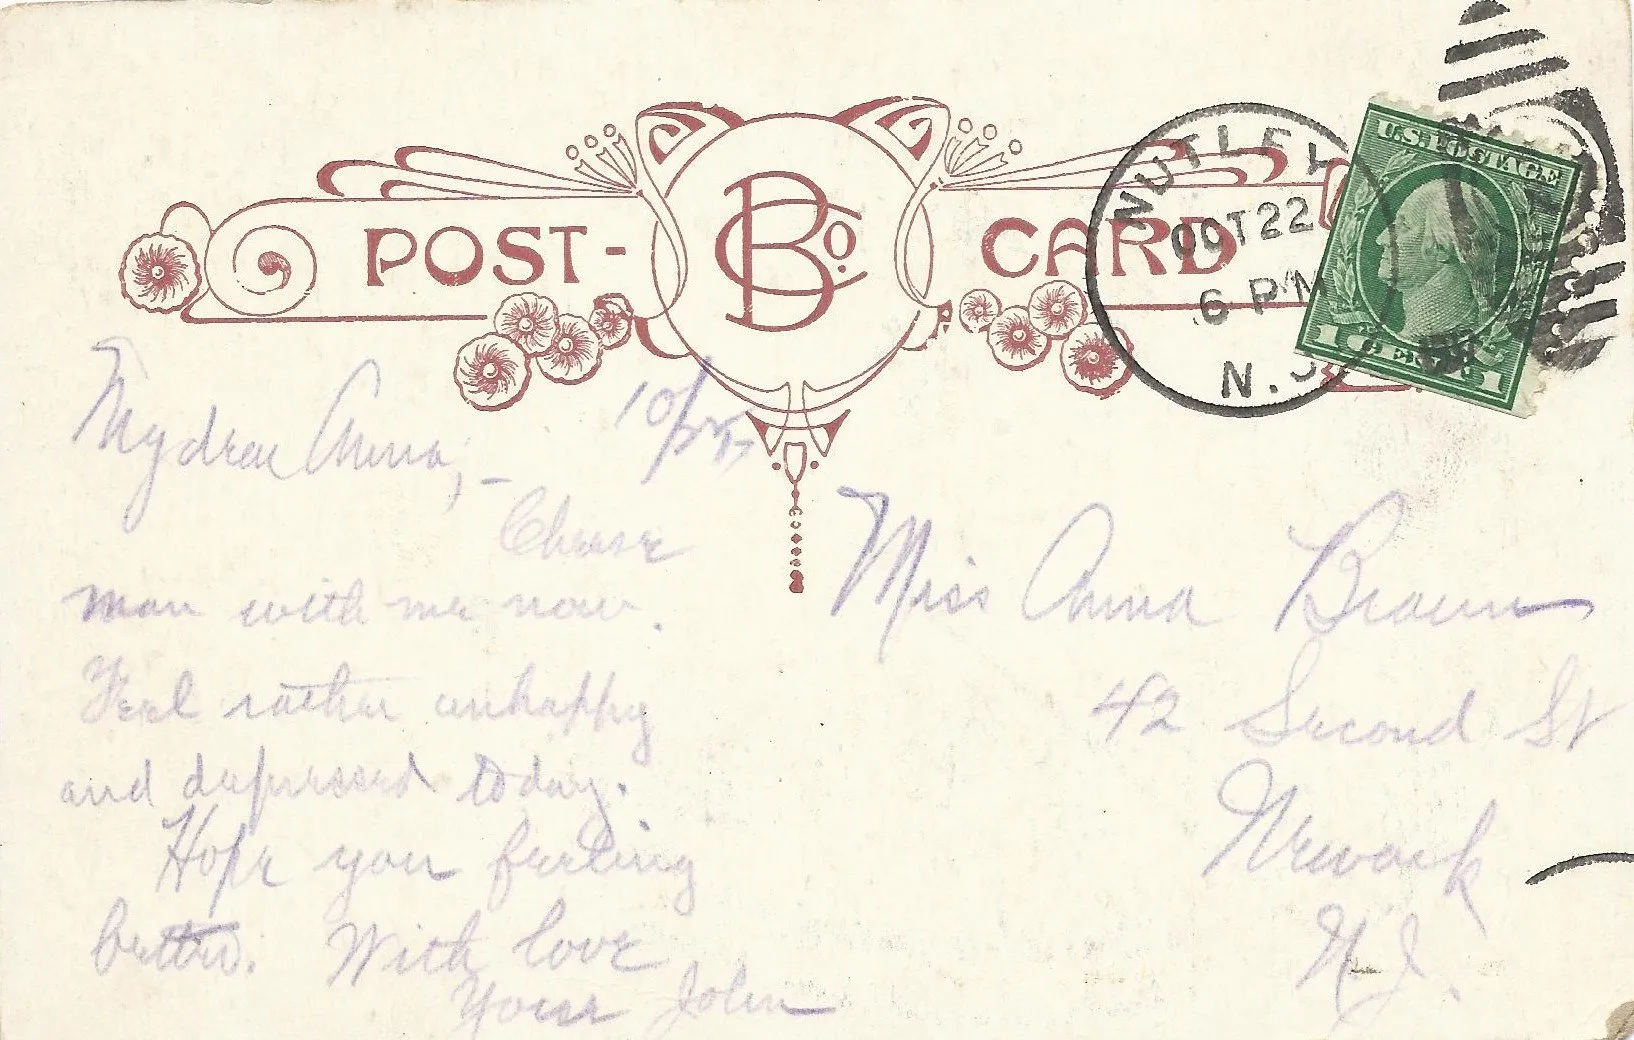 POST-CARD
BCo.
NUTLEY
OCT 22
6 PM
N.J
U.S. POSTAGE
1 CENT 1
My dear Anna,-
10/22
Cheese
man with me now.
Feel rather unhappy
and depressed today.
Hope you feeling
better. With love
Your John
Miss Anna Brown
42 Second St
Newark
N.J.